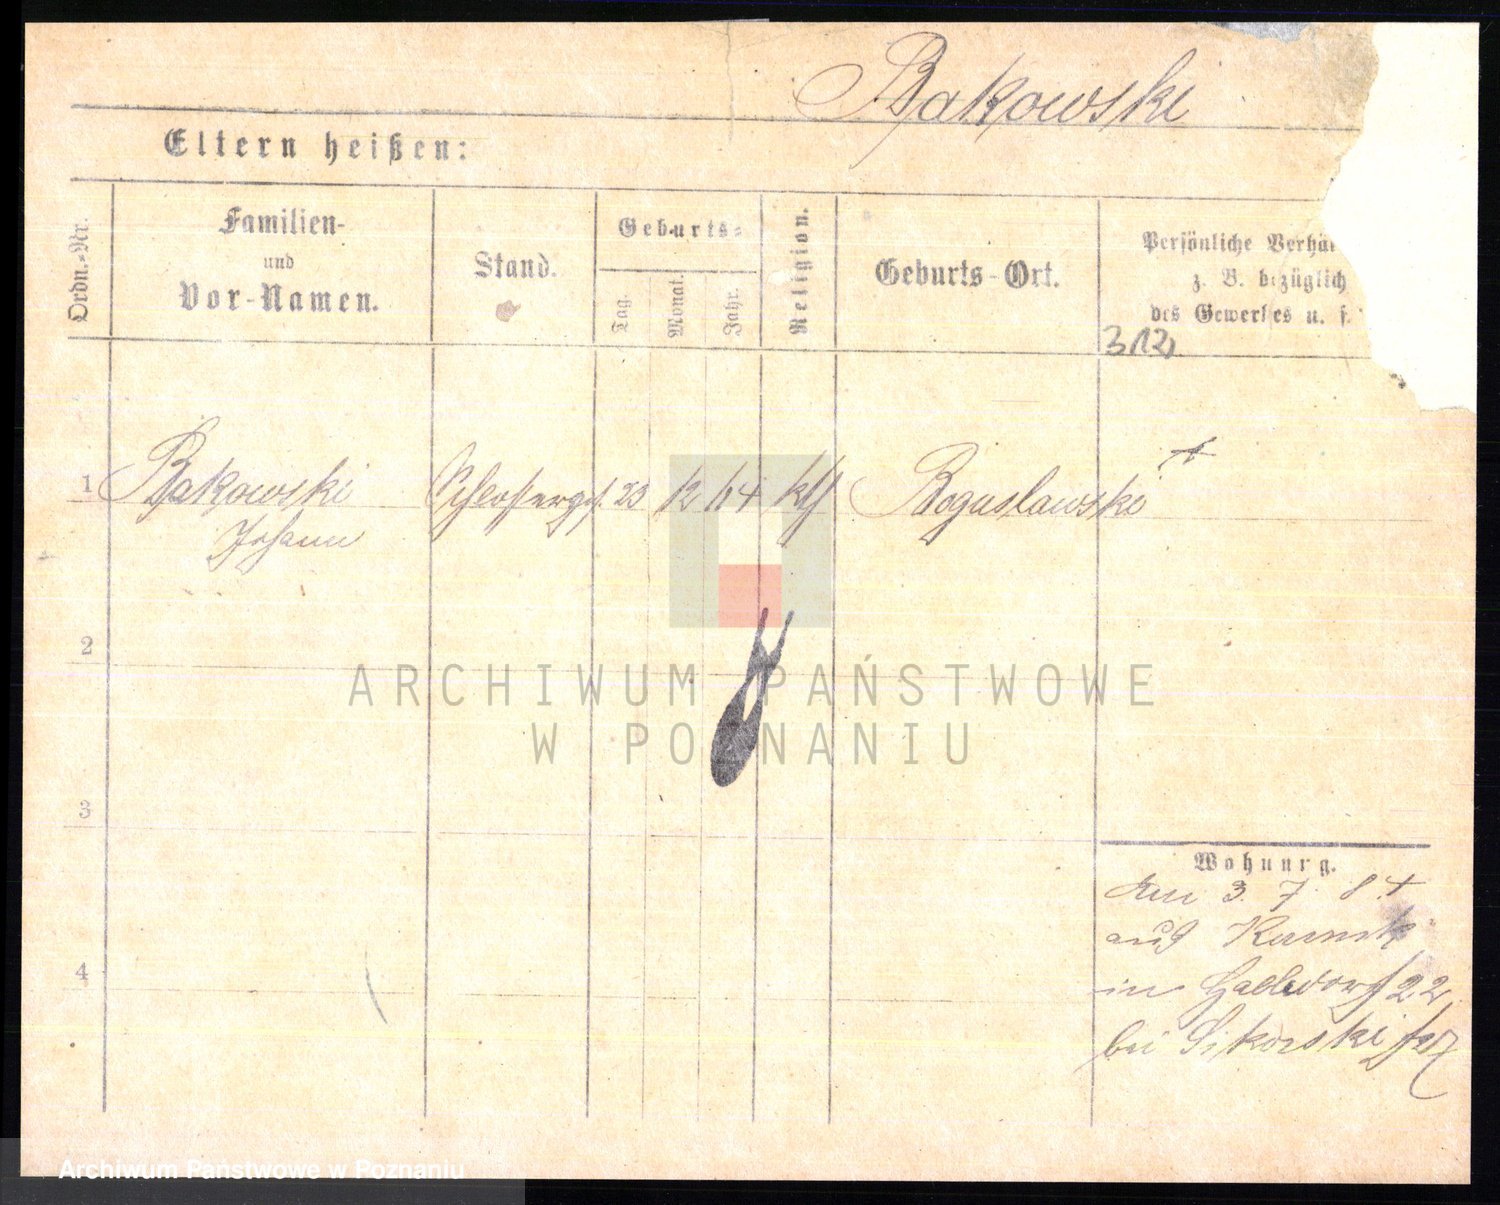 Bakowski
Eltern heißen:
Ordn.-Nr.
Familien-
und
Vor-Namen.
Stand.
Geburts-
Tag.
Monat.
Jahr.
Religion.
Geburts-Ort.
Persönliche Verhäl
z. B. bezüglich
des Gewerbes u. s.
312
1
Bakowski
Johann
Schlosserges. 23 12 64 kth Boguslawski
2
3
4
Wohnung.
den 3. 7. 84
aus
in Halbdorf 22
bei Sikorski
ARCHIWUM PAŃSTWOWE
W POZNANIU
Archiwum Państwowe w Poznaniu